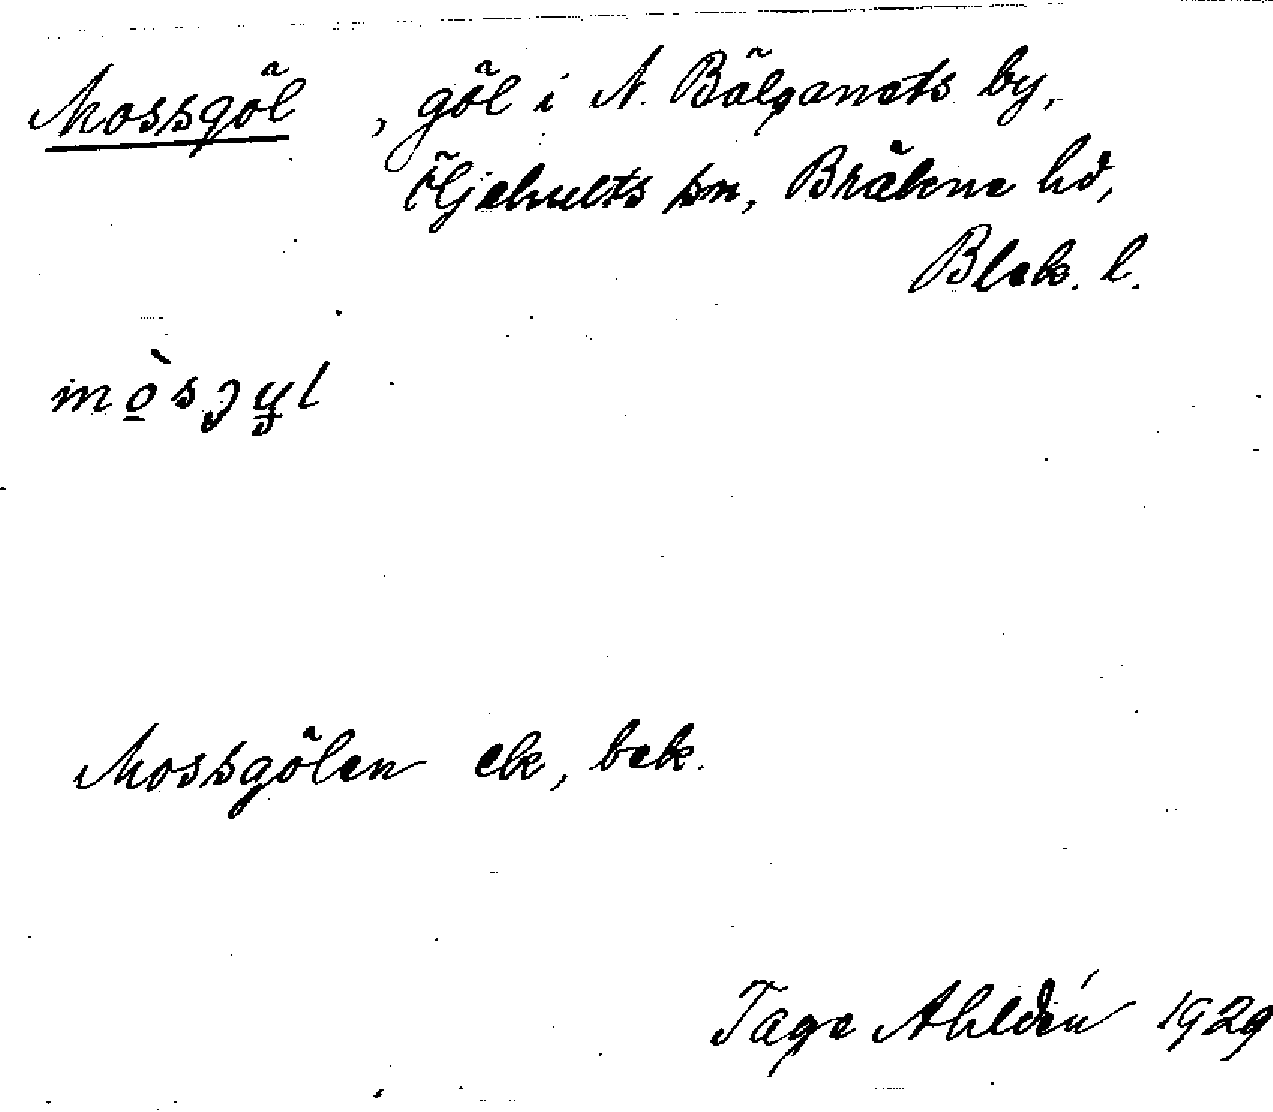 Mossgöl, göl i N. Bälganets by,
Öljehults sn, Bräkne hd,
Blek. l.
mò̱sɟy̱l
Mossgölen ek, bek.
Tage Ahldén 1929